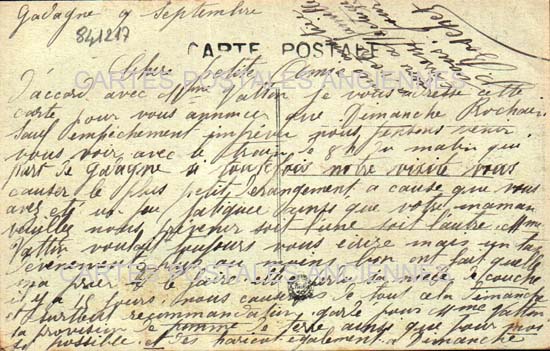 Gadagne 9 Septembre
841217
CARTE POSTALE
Chère petite Amie
D'accord avec Mme Vatton je vous adresse cette
carte pour vous annoncer que Dimanche Prochain
sauf empêchement imprévu nous pensons venir
vous voir avec le train de 8h du matin qui
part de Gadagne si toutefois notre visite vous
causer le plus petit dérangement a cause que vous
avez été un peu fatiguée ainsi que votre maman
veuillez nous prévenir soit l'une soit l'autre Mme
Vatton voulait toujours vous écrire mais un tas
d'evenements plus ou moins bon ont fait quelle
m'a prier de le faire
il y a 15 jours nous causerons de tout cela Dimanche
et surtout recommandation garde pour Mme Vatton
la provision de pomme de terre ainsi que pour moi
si possible et des haricots également a Dimanche
CARTES POSTALES ANCIENNES
CARTES POSTALES ANCIENNES